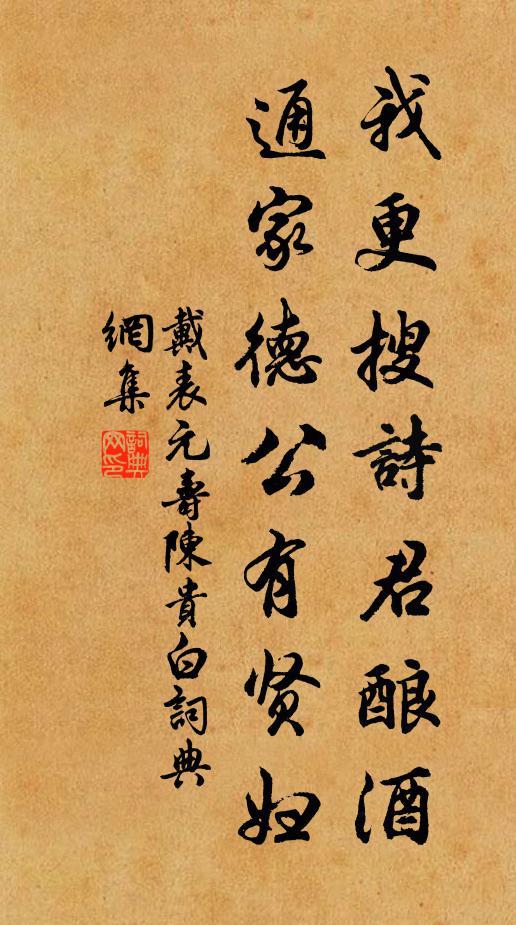 我更搜詩君酿酒
通家德公有贤妇
戴表元壽陳貴白詞典
網集
詞典網印